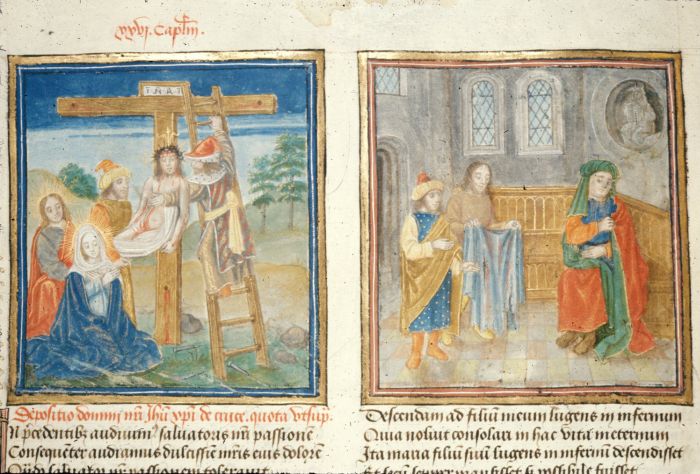 xxvi. Caplm
INRI
Depositio domini nri Jhu xpi de cruce. quota vesp
In precedentib audivim saluatoris nri passionē
Consequeter audiamus dulcissime mris eius dolorē
saluator nri passionem tolerauit
Descendam ad filium meum lugens in infernum
Quia noluit consolari in hac vita in eternum
Ita maria filiū suū lugens in infernū descendisset
Et secū semper mansisset si possibile fuisset